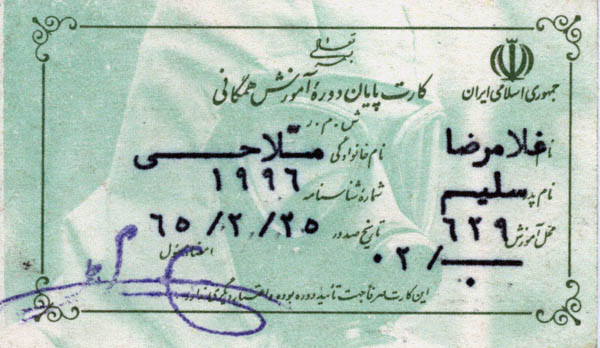 بسمه تعالی
جمهوری اسلامی ایران
کارت پایان دوره آموزش همگانی
ش . م . ر
نام غلامرضا نام خانوادگی ملاحی
نام پدر سلیم شماره شناسنامه ۱۹۹۶
محل آموزش ۶۲۹ تاریخ صدور ۶۵/۲/۲۵
۰۲/
امضاء مسئول
این کارت صرفاً جهت تأیید دوره بوده و اعتبار دیگری ندارد